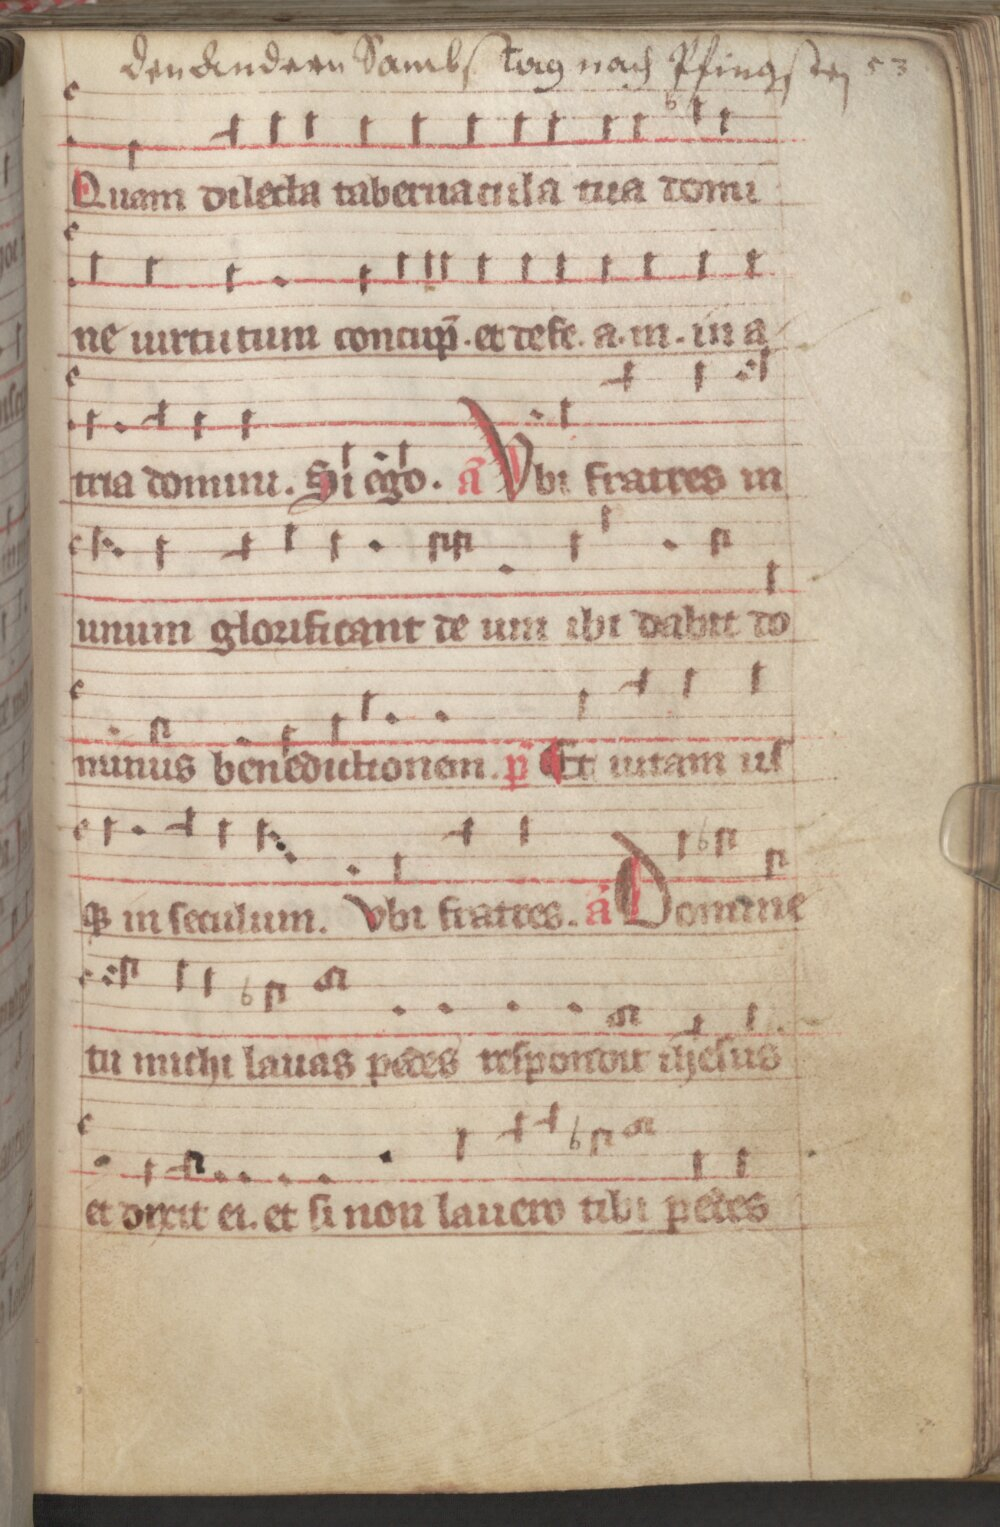 den Andern Sambstag nach Pfingsten 53
Quam dilecta tabernacula tua domi
ne uirtutum concup̄. et defe. a. m. in a
tria domini. Si ego. a᷃ Vbi fratres in
unum glorificant de um ibi dabit do
minus benedictionem. p̄ Et uitam us
q3 in seculum. Vbi fratres. a᷃ Domine
tu michi lauas pedes respondit ihesus
et dixit ei. et si non lauero tibi pedes